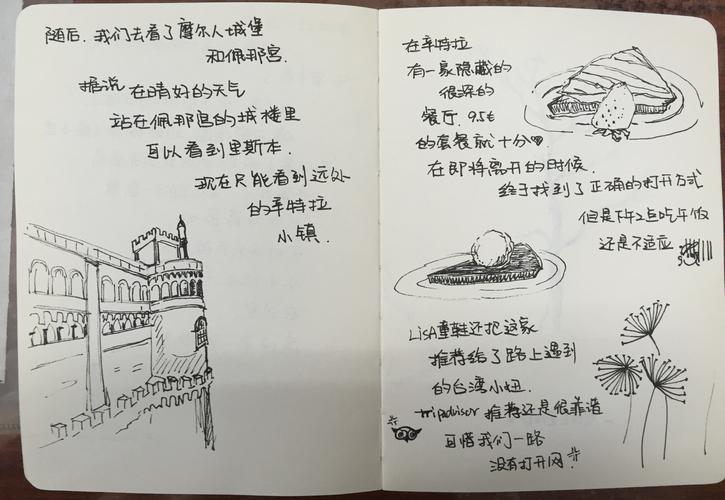 随后，我们去看了摩尔人城堡
和佩那宫．
据说 在晴好的天气
站在佩那宫的城楼里
可以看到里斯本．
现在只能看到远处
的辛特拉
小镇．
在辛特拉
有一家隐藏的
很深的
餐厅．9.5€
的套餐就十分
在即将离开的时候．
终于找到了正确的打开方式
但是下午2点吃午饭
还是不适应
LisA童鞋还把这家
推荐给了路上遇到
的台湾小妞．
tripadvisor 推荐还是很靠谱
可惜我们一路
没有打开网！